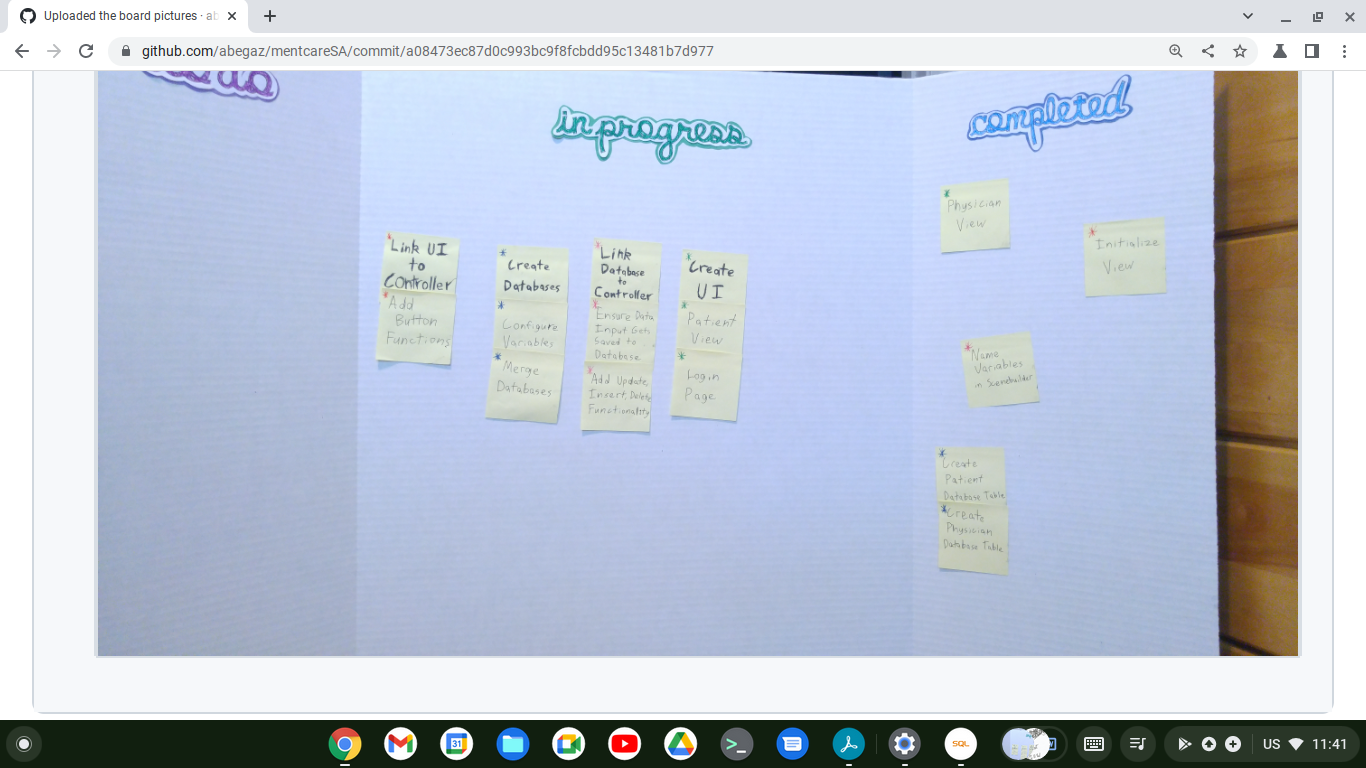 Uploaded the board pictures · ab
github.com/abegaz/mentcareSA/commit/a08473ec87d0c993bc9f8fcbdd95c13481b7d977
in progress
completed
Link UI
to
Controller
Add
Button
Functions
Create
Databases
Configure
Variables
Merge
Databases
Link
Database
to
Controller
Ensure Data
Input Gets
Saved to
Database
Add Update
Insert, Delete
Functionality
Create
UI
Patient
View
Login
Page
Physician
View
Initialize
View
Name
Variables
in Scenebuilder
Create
Patient
Database Table
Create
Physician
Database Table
31
SQL
US
11:41